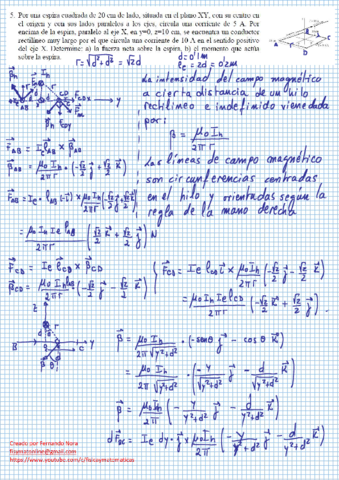 5. Por una espira cuadrada de 20 cm de lado, situado en el plano XY, con su centro en
el origen y con sus lados paralelos a los ejes, circula una corriente de 5 A. Por
encima de la espira, paralelo al eje X, en y=0, z=10 cm, se encuentra un conductor
rectilíneo muy largo por el que circula una corriente de 10 A en el sentido positivo
del eje X. Determine: a) la fuerza neta sobre la espira, b) el momento que actúa
sobre la espira.
r = √(d²+d²) = √2 d
d = 0.1m
ℓe = 2d = 0.2m
La intensidad del campo magnético
a cierta distancia de un hilo
rectilíneo e indefinido viene dada
por:
B = μ₀ I_h / 2πr
F_AB = I_e ℓ_AB × B_AB
B_AB = μ₀ I_h / 2πr · (-√2/2 j + √2/2 k)
Las líneas de campo magnético
son circunferencias centradas
en el hilo y orientadas según la
regla de la mano derecha
= μ₀ I_h I_e ℓ_AB / 2πr (√2/2 k + √2/2 j) N
F_CD = I_e ℓ_CD × B_CD
B_CD = μ₀ I_h / 2πr (-√2/2 j - √2/2 k)
F_CD = I_e ℓ_CD i × μ₀ I_h / 2πr (-√2/2 j - √2/2 k)
= μ₀ I_h I_e ℓ_CD / 2πr (-√2/2 k + √2/2 j)
B = μ₀ I_h / 2π√(y²+d²) · (-senθ j - cosθ k)
B = μ₀ I_h / 2π√(y²+d²) · (-y/√(y²+d²) j - d/√(y²+d²) k)
B = μ₀ I_h / 2π (-y/(y²+d²) j - d/(y²+d²) k)
dF_BC = I_e dy · j × μ₀ I_h / 2π (-y/(y²+d²) j - d/(y²+d²) k)
Creado por Fernando Nora
fitomatonline@gmail.com